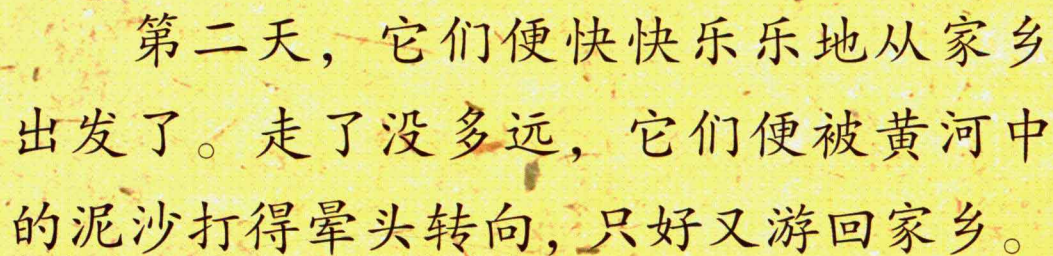 第二天，它们便快快乐乐地从家乡
出发了。走了没多远，它们便被黄河中
的泥沙打得晕头转向，只好又游回家乡。